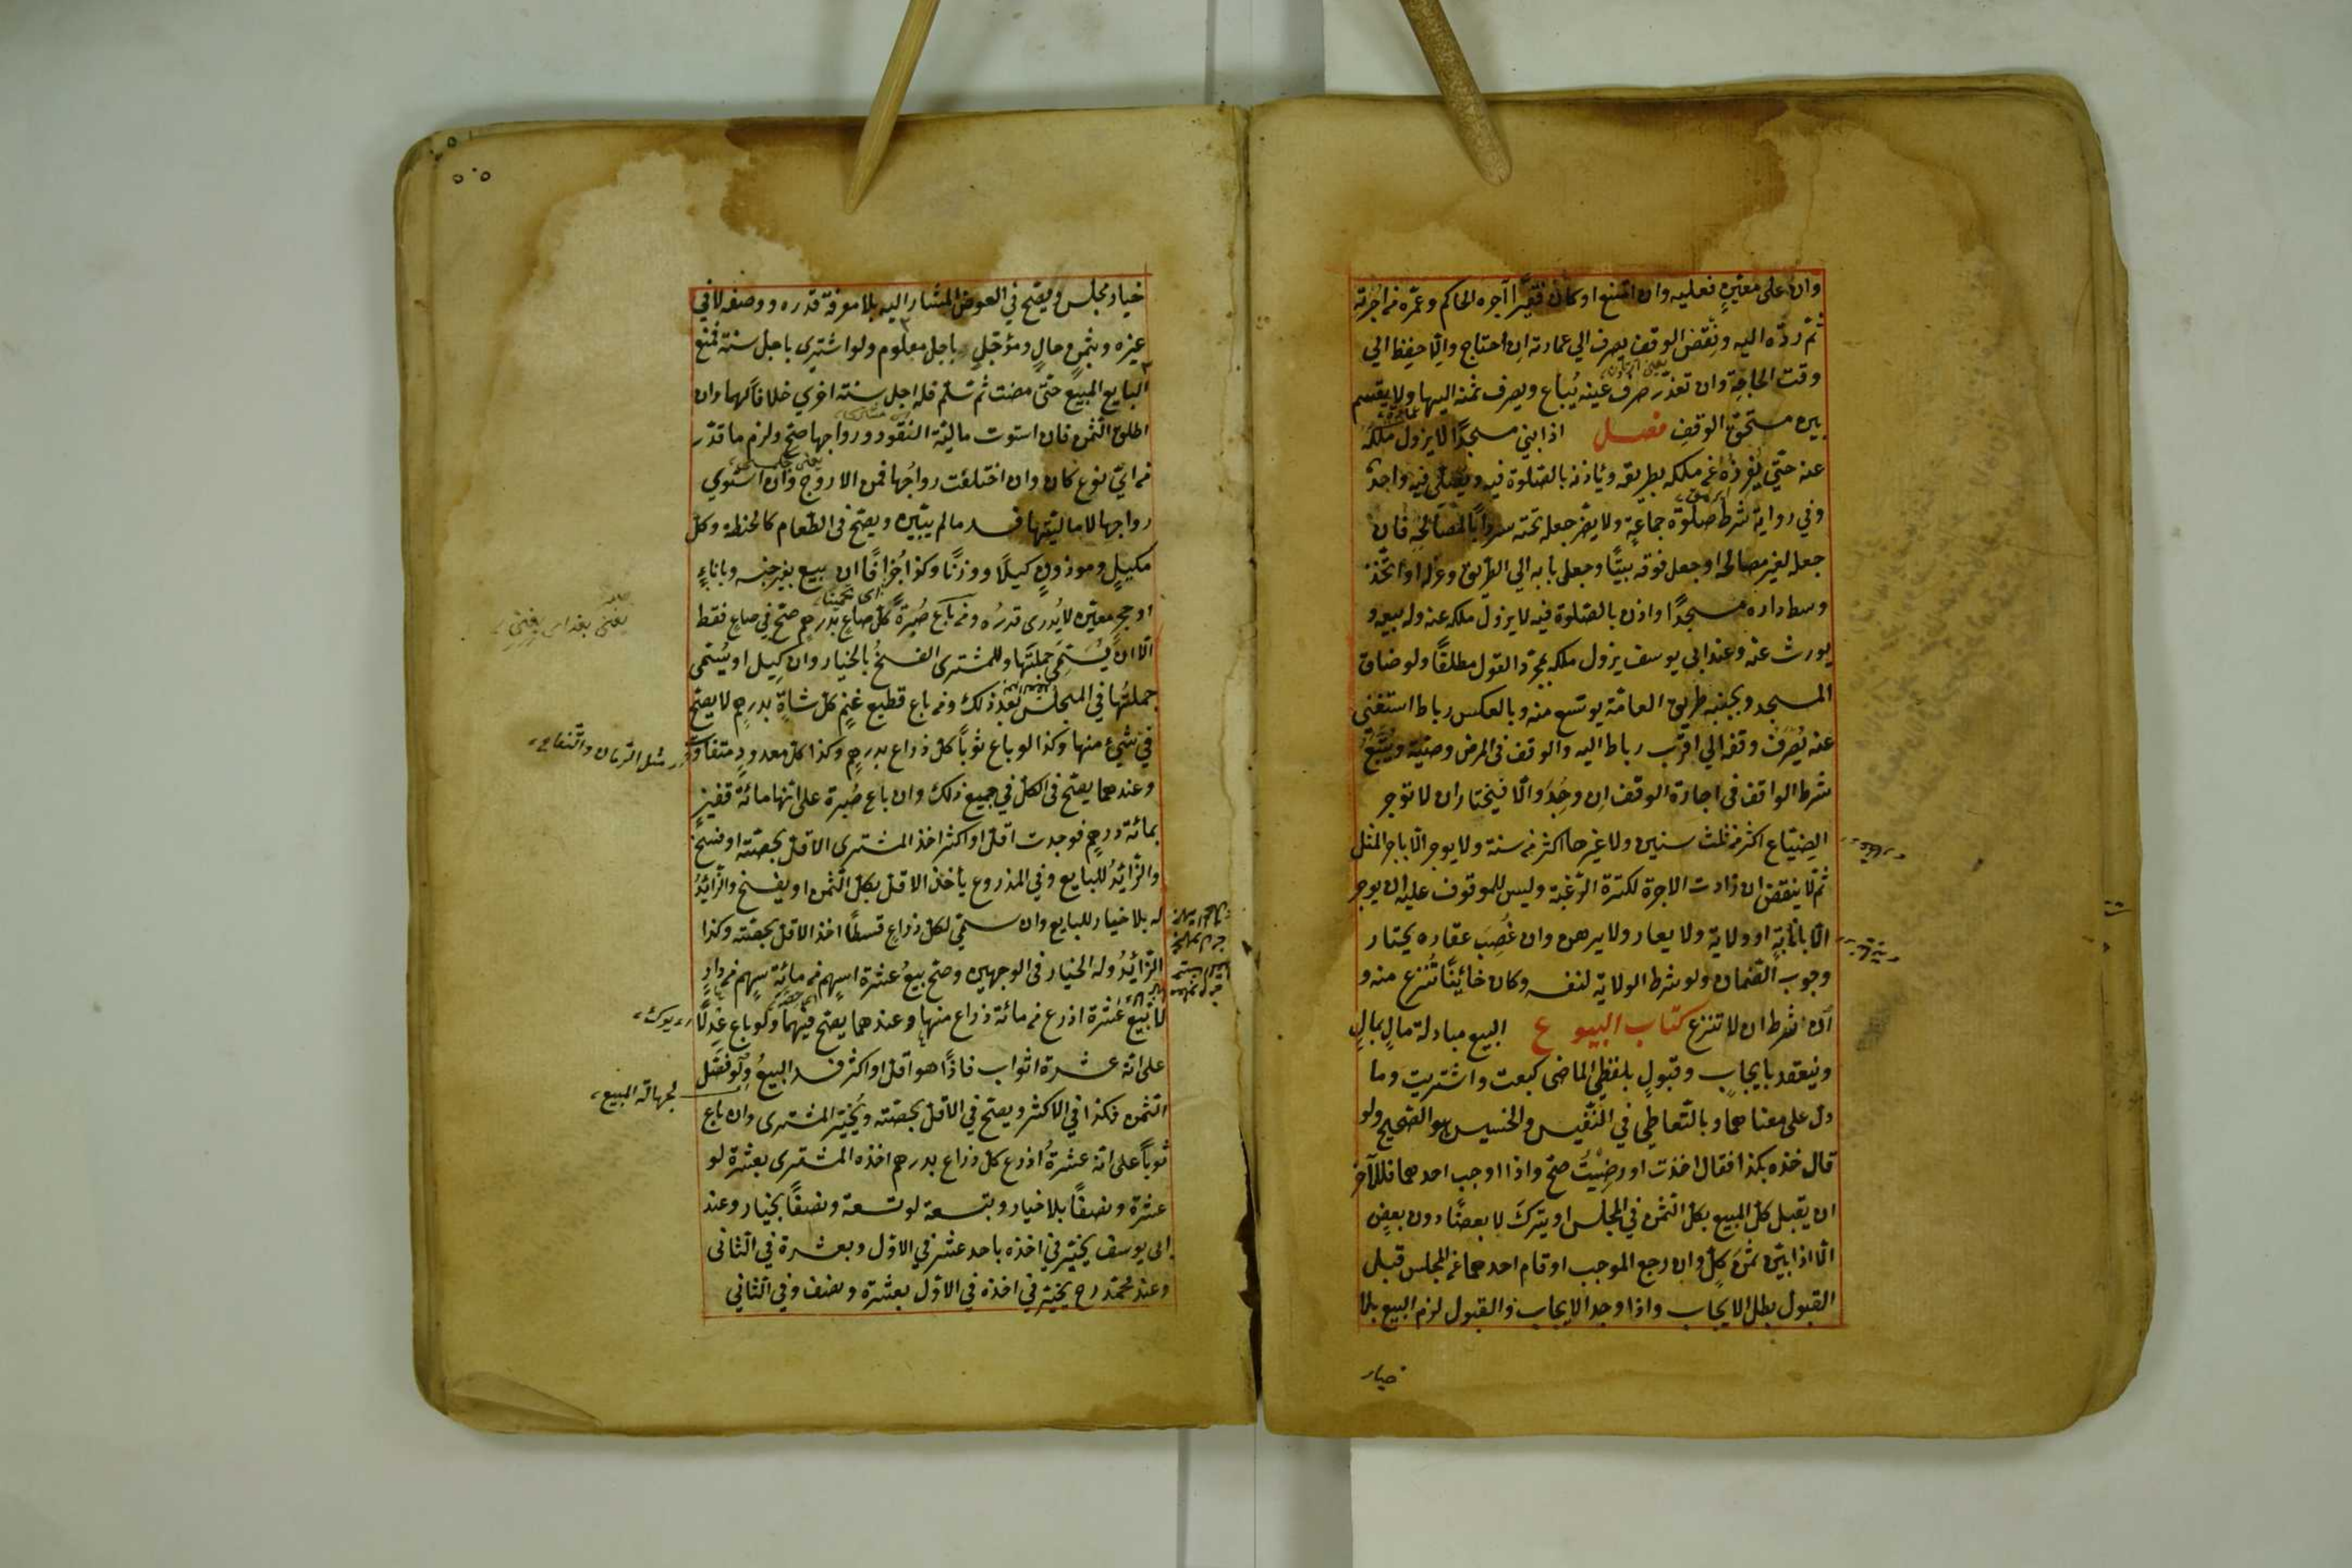 وان على معيّن فعليه وان امتنع او كان فقيرًا آجره الحاكم وعمّره من اجرته
ثمّ ردّه اليه ونقض الوقف يصرف الي عمارته ان احتاج والّا حفظ الي
وقت الحاجة وان تعذر صرف عينه يُباع ويصرف ثمنه اليها ولا يقسم
بين مستحق الوقف فصل اذا بني مسجدًا لا يزول ملكه
عنه حتّي يُفرزه عن ملكه بطريقه ويأذن بالصّلوة فيه ويصلّي فيه واحد
وفي رواية شرط صلوة جماعةٍ ولا يضرّ جعله تحته سردابًا لمصالحه فان
جعله لغير مصالحه او جعل فوقه بيتًا وجعل بابه الي الطّريق وعزله او اتّخذ
وسط داره مسجدًا واذن بالصّلوة فيه لا يزول ملكه عنه وله بيعه و
يورث عنه وعند ابي يوسف يزول ملكه بمجرّد القول مطلقًا ولو ضاق
المسجد وبجنبه طريق العامّة يوسّع منه وبالعكس رباط استغني
عنه يُصرف وقفه الي اقرب رباط اليه والوقف في المرض وصيّة ويُتّبع
شرط الواقف في اجارة الوقف ان وجد والّا فيختار ان لا توجر
الضياع اكثر من ثلث سنين ولا غيرها اكثر من سنة ولا يوجر الّا باجر المثل
ثمّ لا ينقض ان زادت الاجرة لكثرة الرّغبة وليس للموقوف عليه ان يوجر
الّا بانابةٍ او ولاية ولا يعار ولا يرهن وان غُصِب عقاره يختار
وجوب الضّمان ولو شرط الولاية لنفسه وكان خائينًا تُنزع منه و
ان شرط ان لا تنزع كتاب البيوع البيع مبادلة مالٍ بمالٍ
وينعقد بايجاب وقبولٍ بلفظي الماضى كبعت واشتريت وما
دلّ على معناهما وبالتّعاطي في النّفيس والخسيس هو الصّحيح ولو
قال خذه بكذا فقال اخذت او رضيتُ صحّ واذا اوجب احدهما فللآخر
ان يقبل كلّ المبيع بكلّ الثّمن في المجلس او يترك لا بعضًا دون بعض
الّا اذا بيّن ثمن كلّ وان رجع الموجب او قام احدهما عن المجلس قبل
القبول بطل الايجاب واذا وجد الايجاب والقبول لزم البيع بلا
خيار
خيار مجلس ويصّح في العوض المشار اليه بلا معرفة قدره ووصفه لا في
غيره وبثمن حالٍ ومؤجّلٍ باجل معلوم ولو اشتري باجل سنة فمنع
البايع المبيع حتّى مضت ثم سلّم فله اجل سنة اخري خلافًا لهما وان
اطلق الثّمن فان استوت ماليّة النّقود ورواجها صحّ ولزم ما قدّر
من ايّ نوع كان وان اختلفت رواجُها فمن الاروج وان استوي
رواجها لا ماليّتها فسد مالم يبيّن ويصّح في الطّعام كالحنطة وكلّ
مكيلٍ وموزونٍ كيلًا ووزنًا وكذا جُزافًا ان بيع بغير جنسه وباناءٍ
او حجرٍ معيّن لا يُدرى قدرُه ومن باع صُبرةً كلّ صاعٍ بدرهمٍ صحّ في صاعٍ فقط
الّا ان يُسمّي جملتها وللمشترى الفسخُ بالخيار وان كِيل او سُمّي
جملتُها في المجلس بعد ذلك ومن باع قطيع غنمٍ كلّ شاةٍ بدرهمٍ لا يصّح
في شيءٍ منها وكذا لو باع ثوبًا كلّ ذراع بدرهمٍ وكذا كلّ معدودٍ متفاوت
وعندهما يصّح في الكلّ في جميع ذلك وان باع صُبرة على انّها مائة قفيزٍ
بمائة درهمٍ فوجدت اقلّ او اكثر اخذ المشترى الاقلّ بحصّته او فسخ
والزّايدُ للبايع وفي المذروع يأخذ الاقلّ بكلّ الثّمن او يفسخ والزّايدُ
له بلا خيار للبايع وان سمّي لكلّ ذراعٍ قسطًا اخذ الاقلّ بحصّته وكذا
الزّايدُ وله الخيار في الوجهين وصحّ بيعُ عشرة اسهم من مائةِ سهمٍ من دارٍ
لا بيع عشرة اذرع من مائة ذراع منها وعندهما يصّح فيهما ولو باع عِدلًا
على انّه عشرة اثواب فاذًا هو اقلّ او اكثر فسد البيعُ ولو فصّل
الثّمن فكذا في الاكثر ويصّح في الاقلّ بحصّته ويُخيّر المشترى وان باع
ثوبًا على انّه عشرةُ اذرع كلّ ذراع بدرهم اخذه المشترى بعشرة لو
عشرة ونصفًا بلا خيار وبتسعة لو تسعة ونصفًا بخيار وعند
ابى يوسف يخيّر في اخذه باحد عشر في الاوّل وبعشرة في الثّانى
وعند محمّد رح يخيّر في اخذه في الاوّل بعشرة ونصف وفي الثّاني
مثل الرّمان والتّفاح
لجهالة المبيع